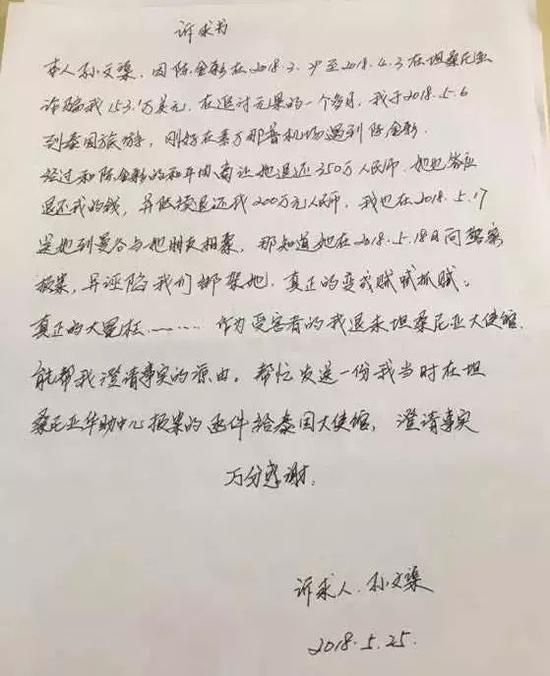 诉求书
本人孙文渠,因陈金彩在2018.2.28至2018.4.3在坦桑尼亚
诈骗我153.1万美元.在追讨无果的一个多月,我于2018.5.6
到泰国旅游,刚好在素万那普机场遇到陈金彩.
经过和陈金彩的和平协商让她退还350万人民币.她也答应
退还我的钱,并陆续退还我200万元人民币,我也在2018.5.17
送她到曼谷与她朋友相聚,那知道她在2018.5.18日向警察
报案,并诬陷我们绑架她.真正的变成贼喊抓贼。
真正的大冤枉………作为受害者的我恳求坦桑尼亚大使馆.
能帮我澄清事实的源由。帮忙发送一份我当时在坦
桑尼亚华助中心报案的函件给泰国大使馆,澄清事实
万分感谢.
诉求人.孙文渠
2018.5.25.